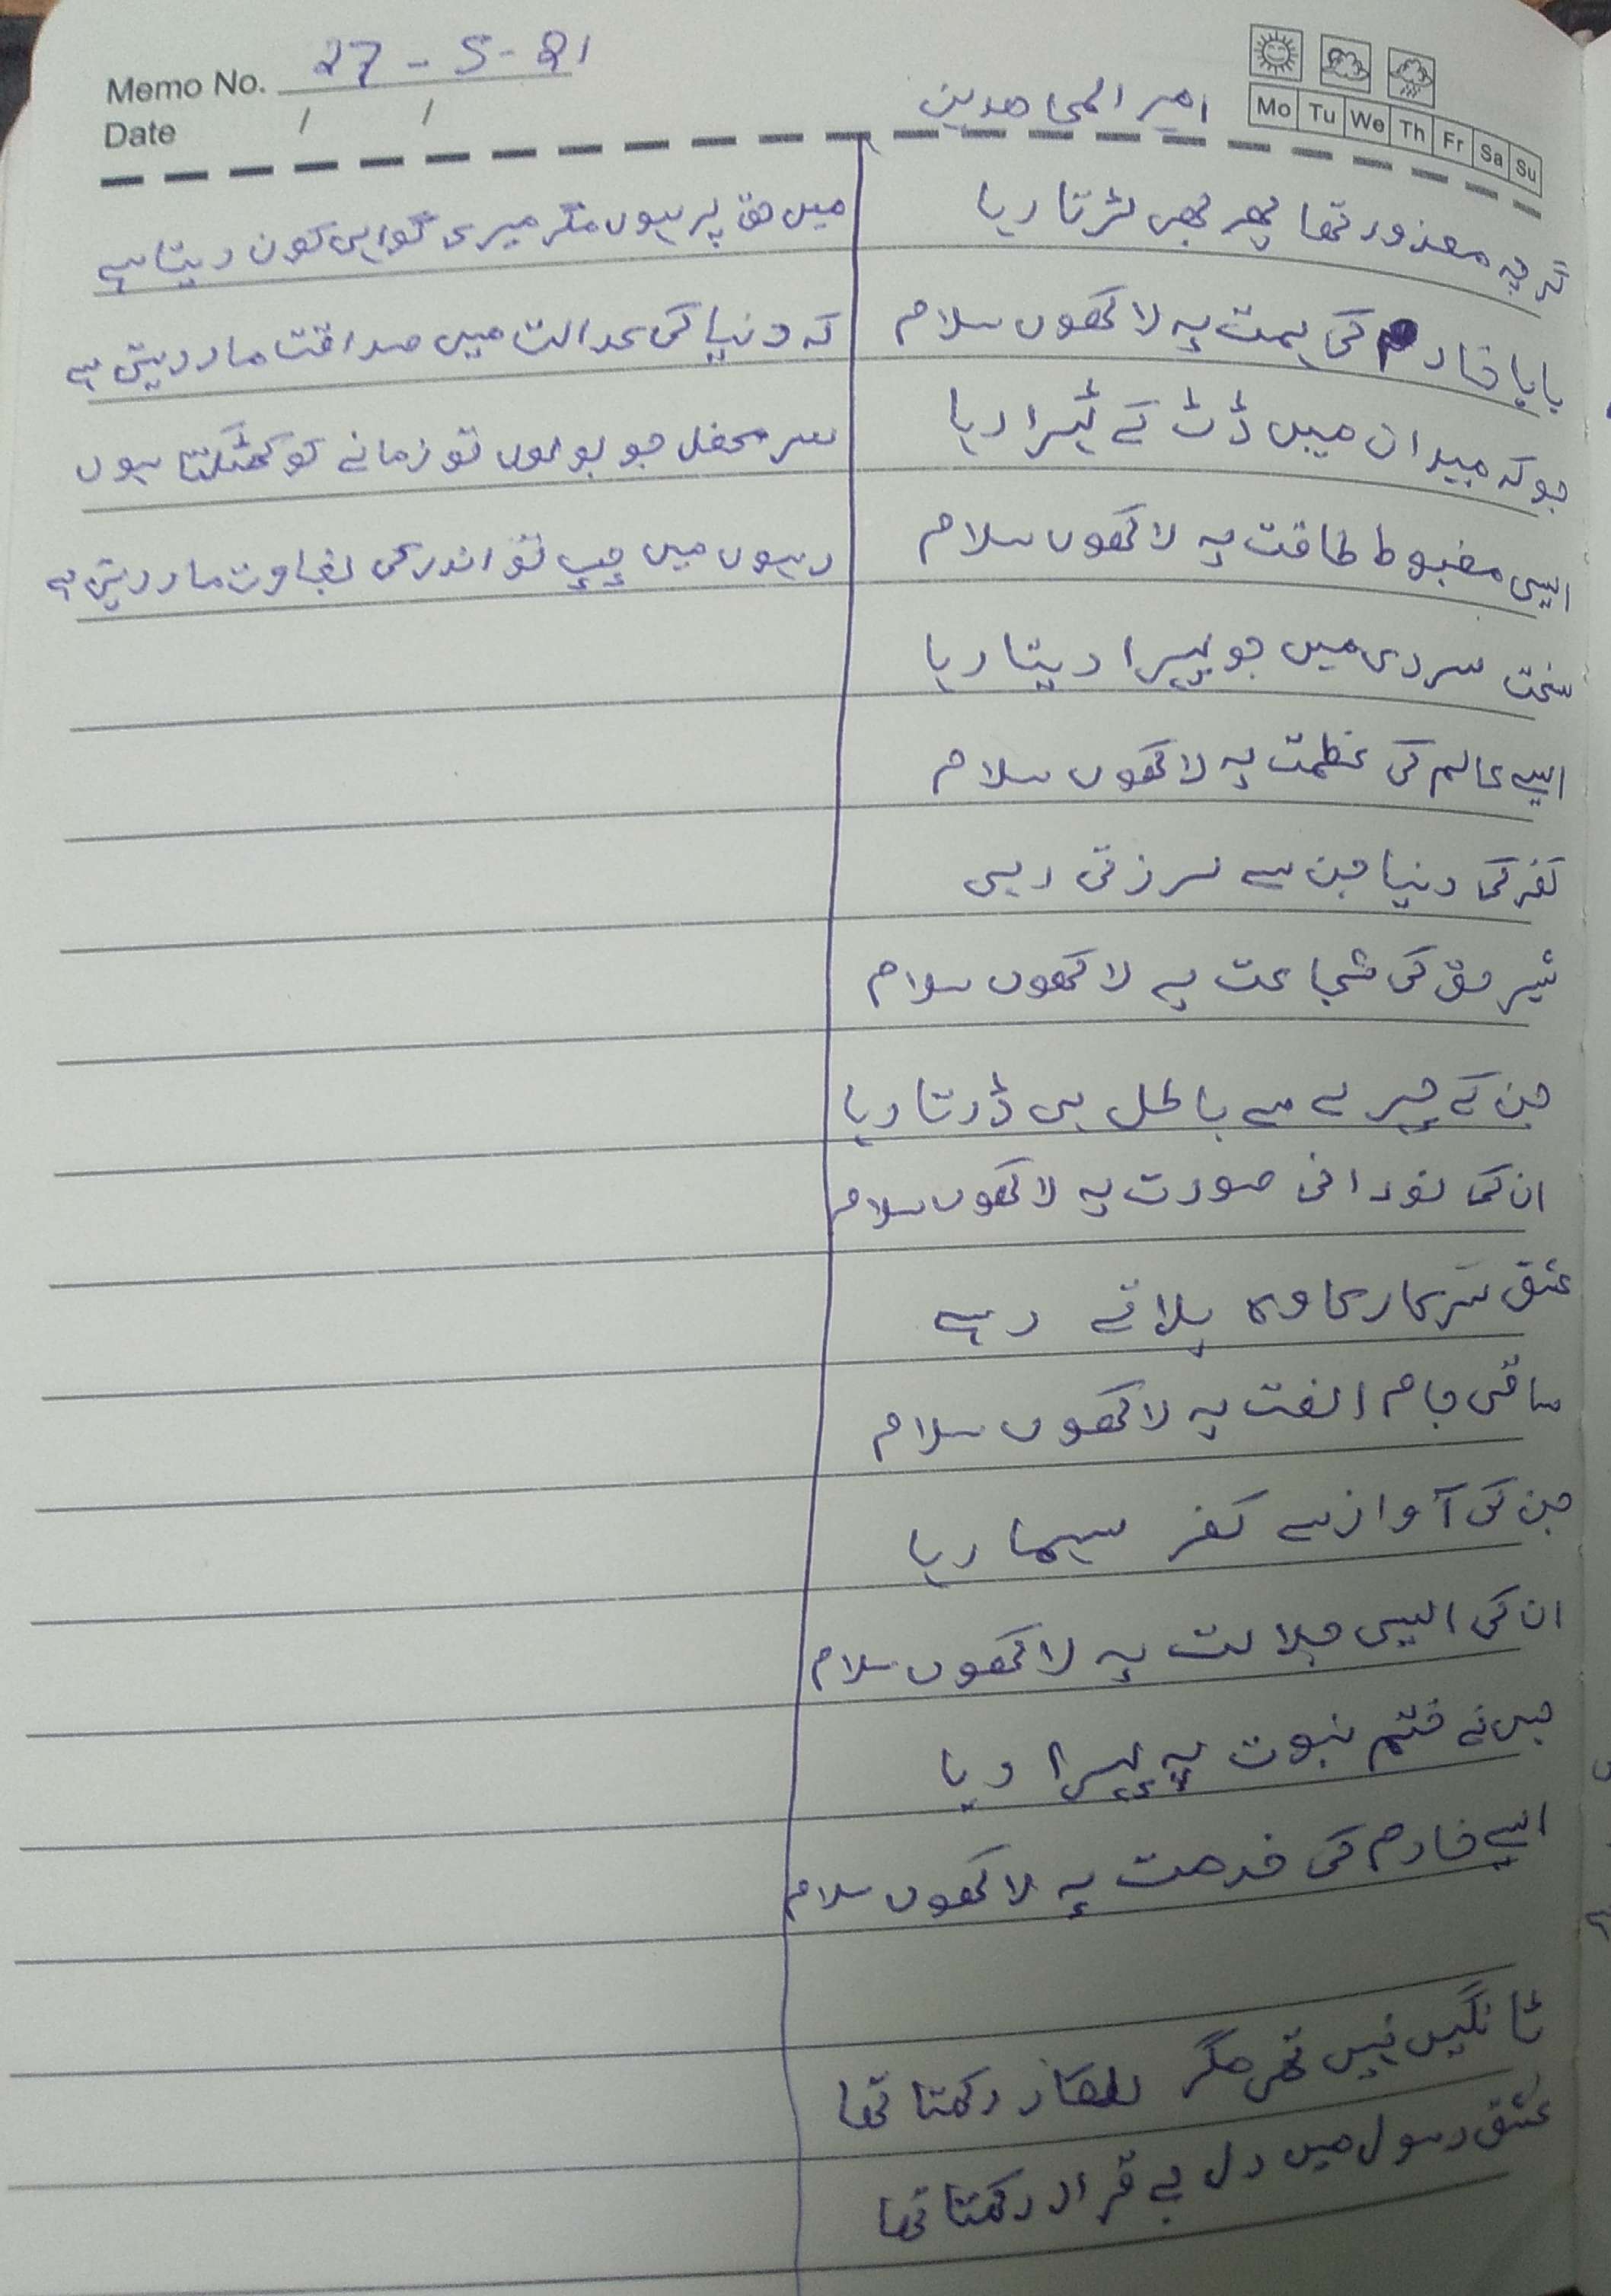 Memo No. 27-5-21
Date / /
Mo Tu We Th Fr Sa Su
امیر المجاھدین
گرچہ معذور تھا پھر بھی لڑتا رہا
بابا خادم کی ہمت پہ لاکھوں سلام
جو کہ میدان میں ڈٹ کے ٹہرا رہا
ایسی مضبوط طاقت پہ لاکھوں سلام
سخت سردی میں جو پہرا دیتا رہا
ایسے عالم کی عظمت پہ لاکھوں سلام
کفر کی دنیا جن سے لرزتی رہی
شیر حق کی شجاعت پہ لاکھوں سلام
جن کے چہرے سے باطل ہی ڈرتا رہا
ان کی نورانی صورت پہ لاکھوں سلام
عشق سرکار کا وہ پلاتے رہے
ساقی جام الفت پہ لاکھوں سلام
جن کی آواز سے کفر سہما رہا
ان کی ایسی جلالت پہ لاکھوں سلام
جس نے ختم نبوت پہ پہرا دیا
ایسے خادم کی خدمت پہ لاکھوں سلام
ٹانگیں نہیں تھی مگر للکار رکھتا تھا
عشق رسول میں دل بے قرار رکھتا تھا
میں حق پر ہوں مگر میری گواہی کون دیتا ہے
کہ دنیا کی عدالت میں صداقت مار دیتی ہے
سر محفل جو بولوں تو زمانے کو کھٹکتا ہوں
رہوں میں چپ تو اندر کی بغاوت مار دیتی ہے